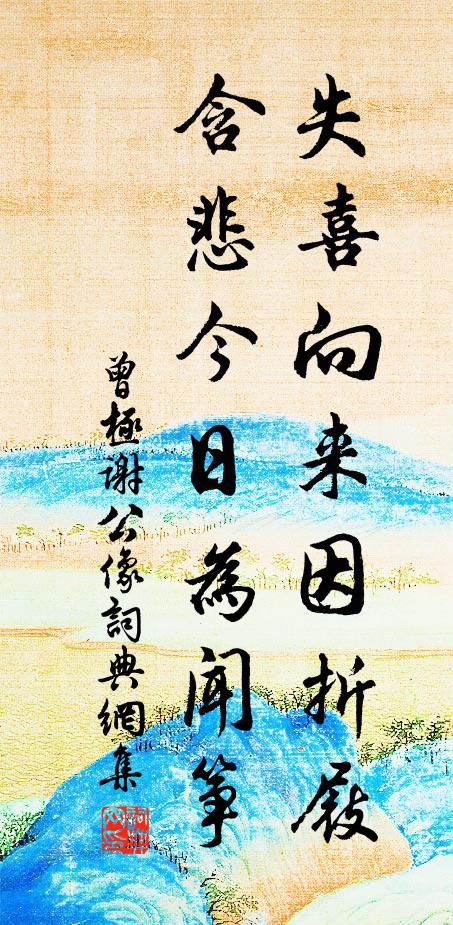 失喜向来因折屐
含悲今日為闻筝
曾極謝公像詞典網集